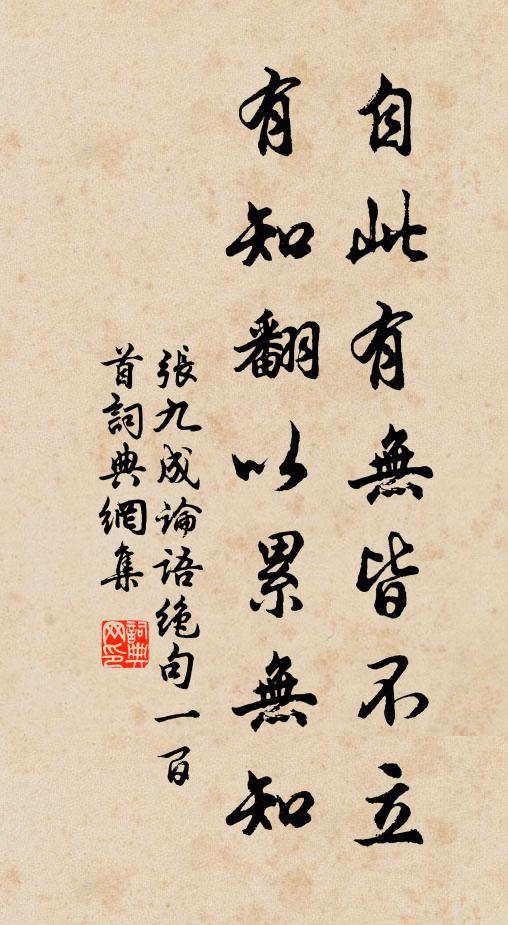 自此有無皆不立
有知翻以累無知
張九成論語絶句一百
首詞典網集
詞典網印